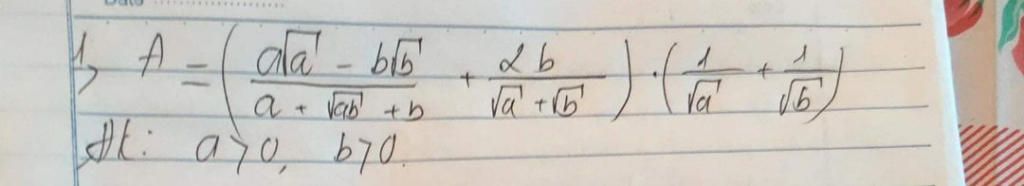 1, A = ( (a√a - b√b)/(a + √ab + b) + 2b/(√a + √b) ) . ( 1/√a + 1/√b )
đk: a > 0, b > 0.